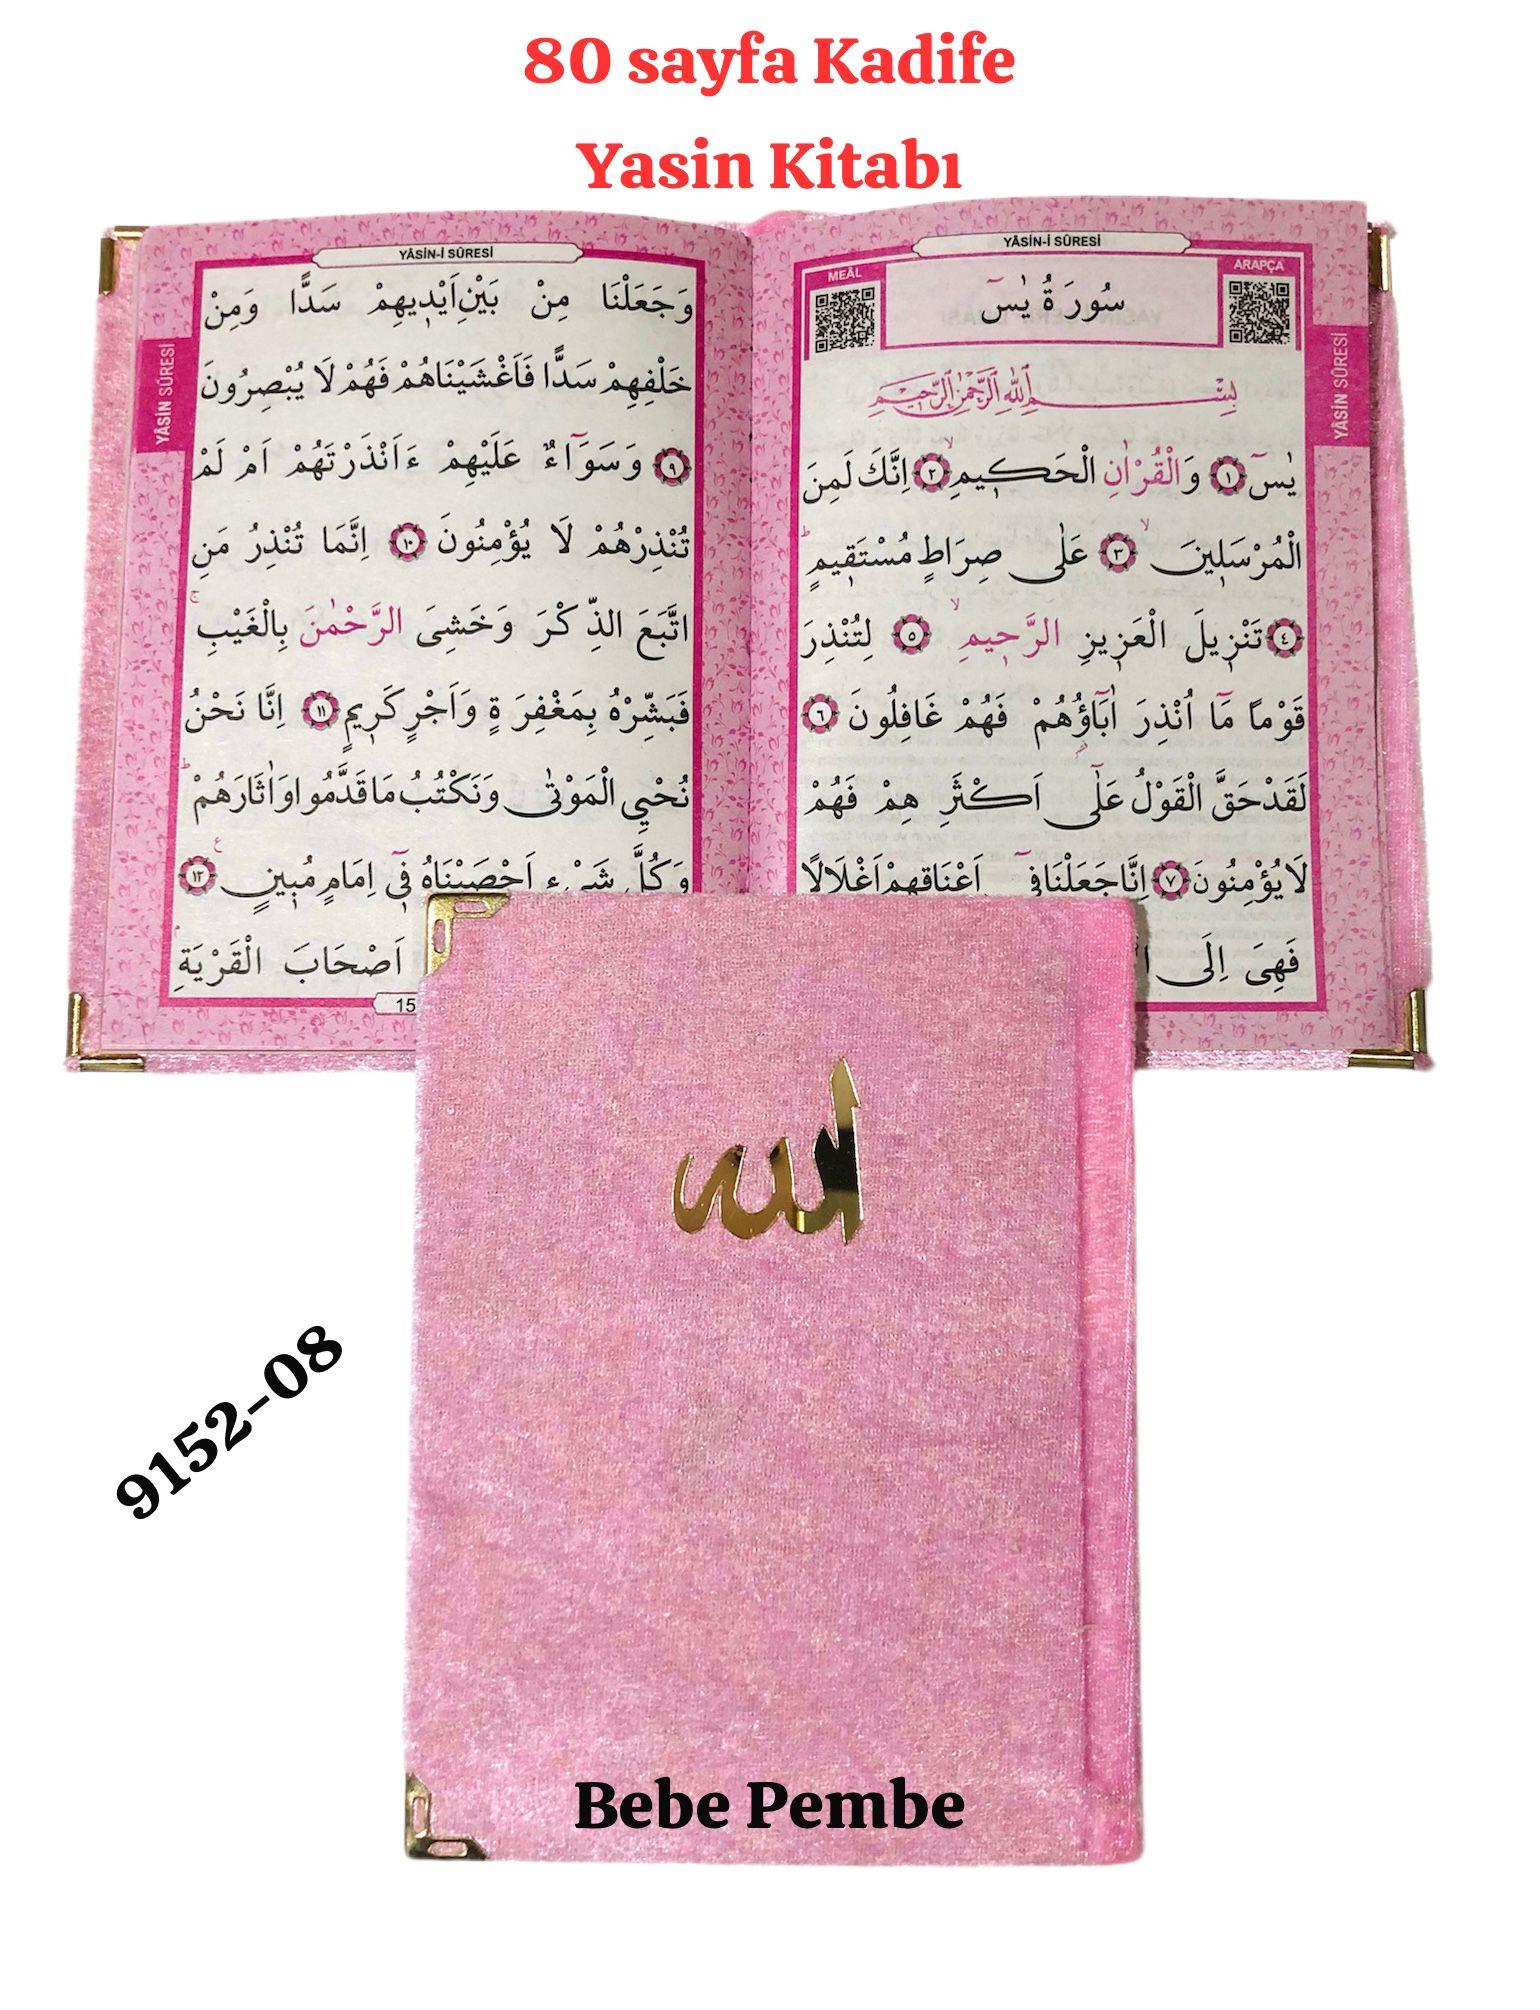 80 sayfa Kadife
Yasin Kitabı
YÂSİN-İ SÛRESİ
MEÂL
ARAPÇA
سُورَةُ يٰسٓ
YÂSİN SÛRESİ
بِسْمِ اللّٰهِ الرَّحْمٰنِ الرَّحِيمِ
يٰسٓ ﴿١﴾ وَالْقُرْاٰنِ الْحَكٖيمِۙ ﴿٢﴾ اِنَّكَ لَمِنَ
الْمُرْسَلٖينَۙ ﴿٣﴾ عَلٰى صِرَاطٍ مُسْتَقٖيمٍۜ
﴿٤﴾ تَنْزٖيلَ الْعَزٖيزِ الرَّحٖيمِۙ ﴿٥﴾ لِتُنْذِرَ
قَوْمًا مَٓا اُنْذِرَ اٰبَٓاؤُهُمْ فَهُمْ غَافِلُونَ ﴿٦﴾
لَقَدْ حَقَّ الْقَوْلُ عَلٰٓى اَكْثَرِهِمْ فَهُمْ
لَا يُؤْمِنُونَ ﴿٧﴾ اِنَّا جَعَلْنَا فٖٓى اَعْنَاقِهِمْ اَغْلَالًا
فَهِىَ اِلَى
YÂSİN-İ SÛRESİ
YÂSİN SÛRESİ
وَجَعَلْنَا مِنْ بَيْنِ اَيْدٖيهِمْ سَدًّا وَمِنْ
خَلْفِهِمْ سَدًّا فَاَغْشَيْنَاهُمْ فَهُمْ لَا يُبْصِرُونَ
﴿٩﴾ وَسَوَٓاءٌ عَلَيْهِمْ ءَاَنْذَرْتَهُمْ اَمْ لَمْ
تُنْذِرْهُمْ لَا يُؤْمِنُونَ ﴿١٠﴾ اِنَّمَا تُنْذِرُ مَنِ
اتَّبَعَ الذِّكْرَ وَخَشِىَ الرَّحْمٰنَ بِالْغَيْبِۚ
فَبَشِّرْهُ بِمَغْفِرَةٍ وَاَجْرٍ كَرٖيمٍ ﴿١١﴾ اِنَّا نَحْنُ
نُحْيِ الْمَوْتٰى وَنَكْتُبُ مَا قَدَّمُوا وَاٰثَارَهُمْۜ
وَكُلَّ شَىْءٍ اَحْصَيْنَاهُ فٖٓى اِمَامٍ مُبٖينٍ ﴿١٢﴾
اَصْحَابَ الْقَرْيَةِ
15
الله
9152-08
Bebe Pembe